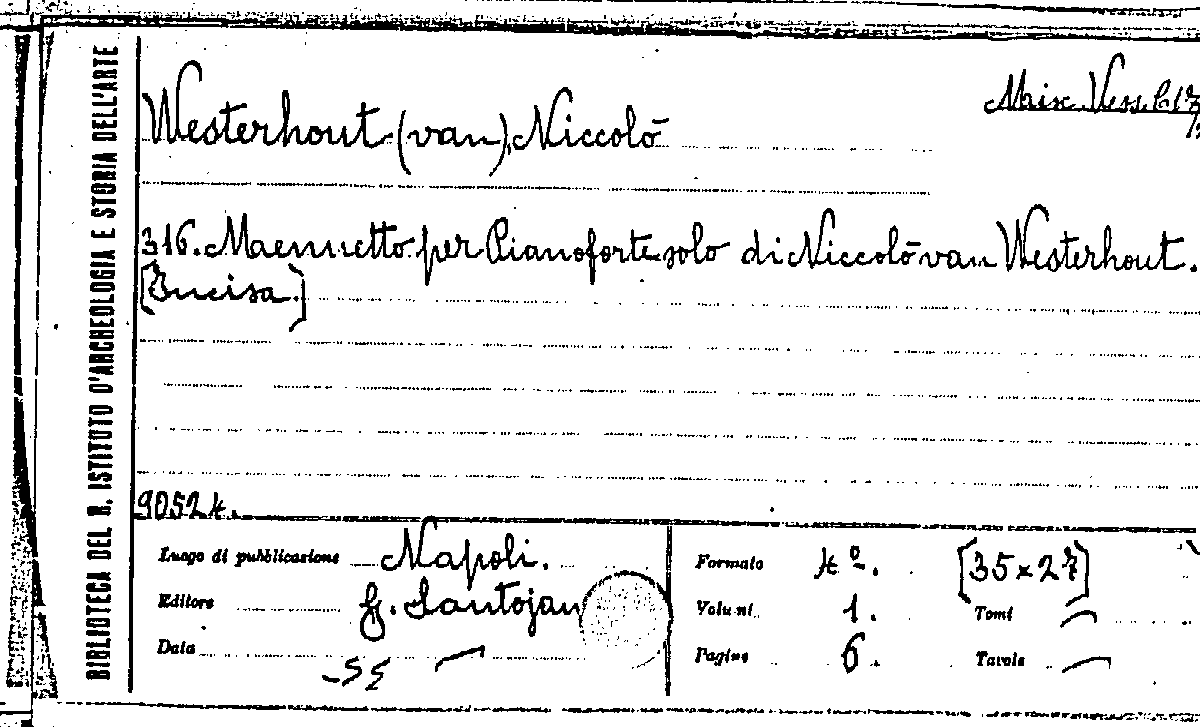 BIBLIOTECA DEL R. ISTITUTO D'ARCHEOLOGIA E STORIA DELL'ARTE
Misc. Vess.
Westerhout (van), Niccolò
316. Maennetto per Pianoforte solo di Niccolò van Westerhout.
[Incisa.]
90524.
Luogo di pubblicazione Napoli.
Editore F. Santojan
Data
Formato 4º. [35×27]
Volumi 1. Tomi —
Pagine 6. Tavole —